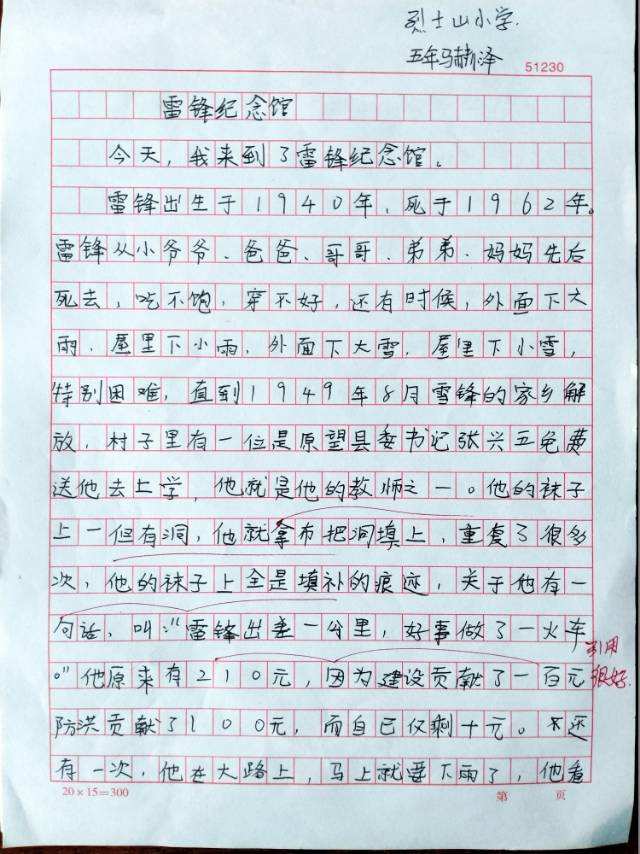 烈士山小学.
五年马赫泽
51230
雷锋纪念馆
今天，我来到了雷锋纪念馆。
雷锋出生于1940年，死于1962年。
雷锋从小爷爷、爸爸、哥哥、弟弟、妈妈先后
死去，吃不饱，穿不好，还有时候，外面下大
雨，屋里下小雨，外面下大雪，屋里下小雪，
特别困难，直到1949年8月雪锋的家乡解
放，村子里有一位是原望县委书记张兴五免费
送他去上学，他就是他的教师之一。他的袜子
上一但有洞，他就拿布把洞填上，重复了很多
次，他的袜子上全是填补的痕迹，关于他有一
句话，叫：“雷锋出差一分里，好事做了一火车
。”他原来有210元，因为建设贡献了一百元
防洪贡献了100元，而自己仅剩十元。还
有一次，他在大路上，马上就要下雨了，他看
引用
很好.
20×15=300
第 页